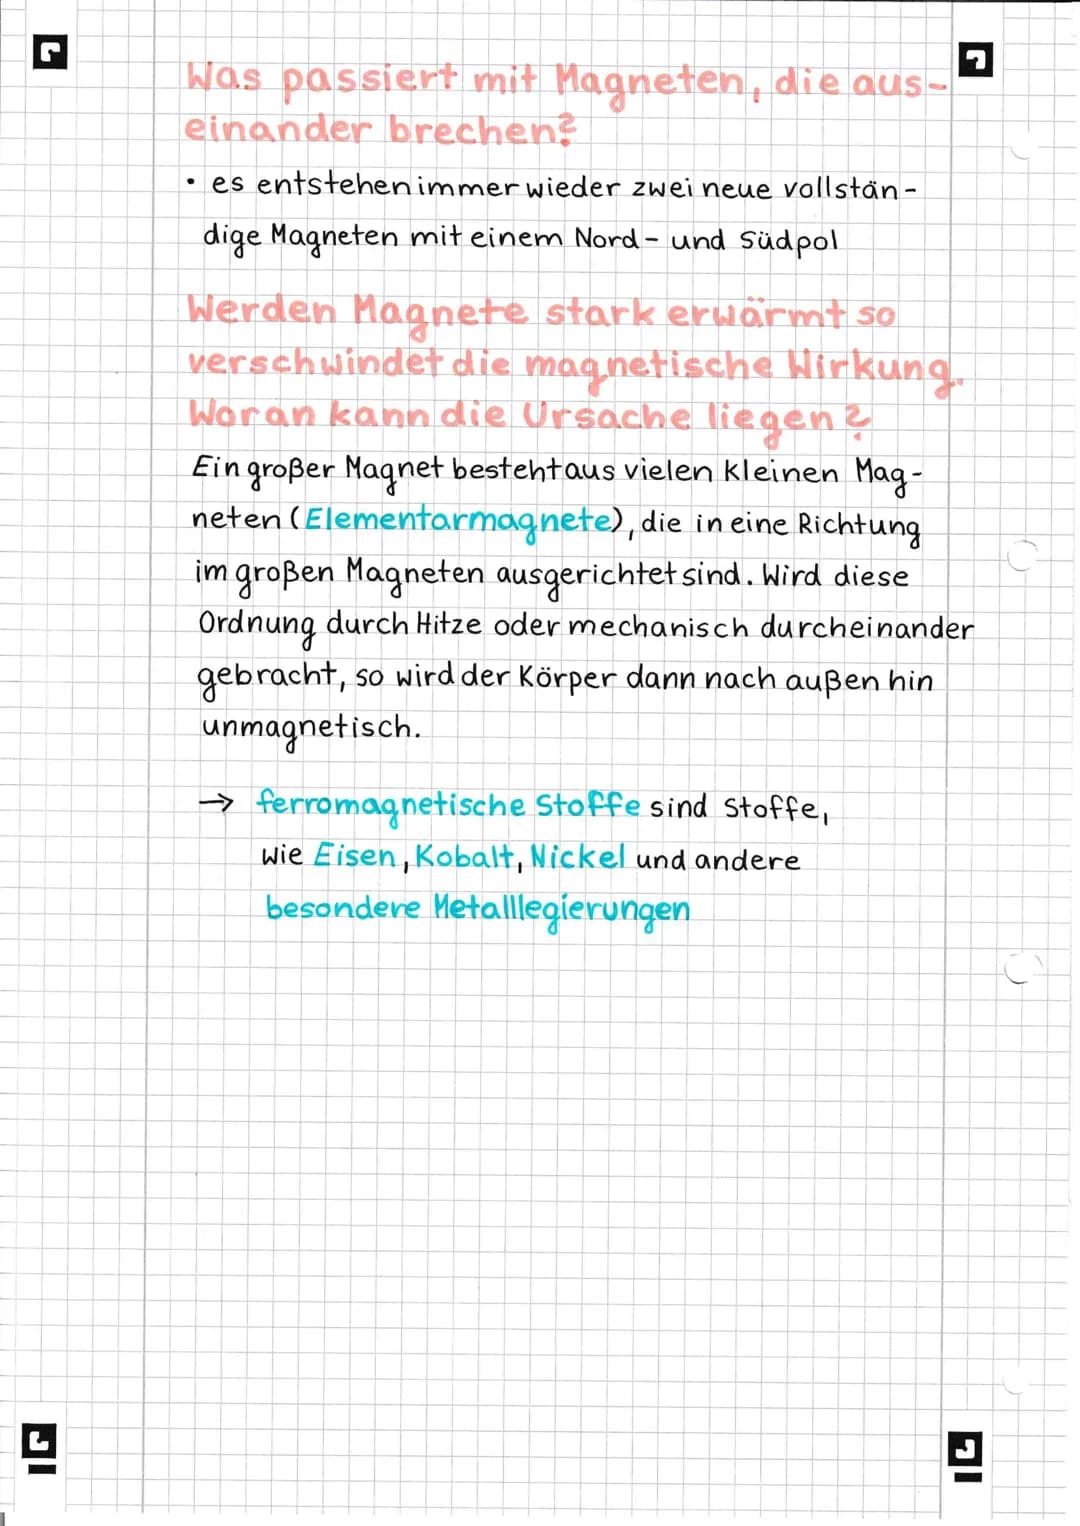 Was passiert mit Magneten, die aus-
einander brechen?
• es entstehen immer wieder zwei neue vollstän-
dige Magneten mit einem Nord- und Südpol
Werden Magnete stark erwärmt so
verschwindet die magnetische Wirkung.
Woran kann die Ursache liegen?
Ein großer Magnet besteht aus vielen kleinen Mag-
neten (Elementarmagnete), die in eine Richtung
im großen Magneten ausgerichtet sind. Wird diese
Ordnung durch Hitze oder mechanisch durcheinander
gebracht, so wird der Körper dann nach außen hin
unmagnetisch.
→ ferromagnetische Stoffe sind Stoffe,
wie Eisen, Kobalt, Nickel und andere
besondere Metalllegierungen